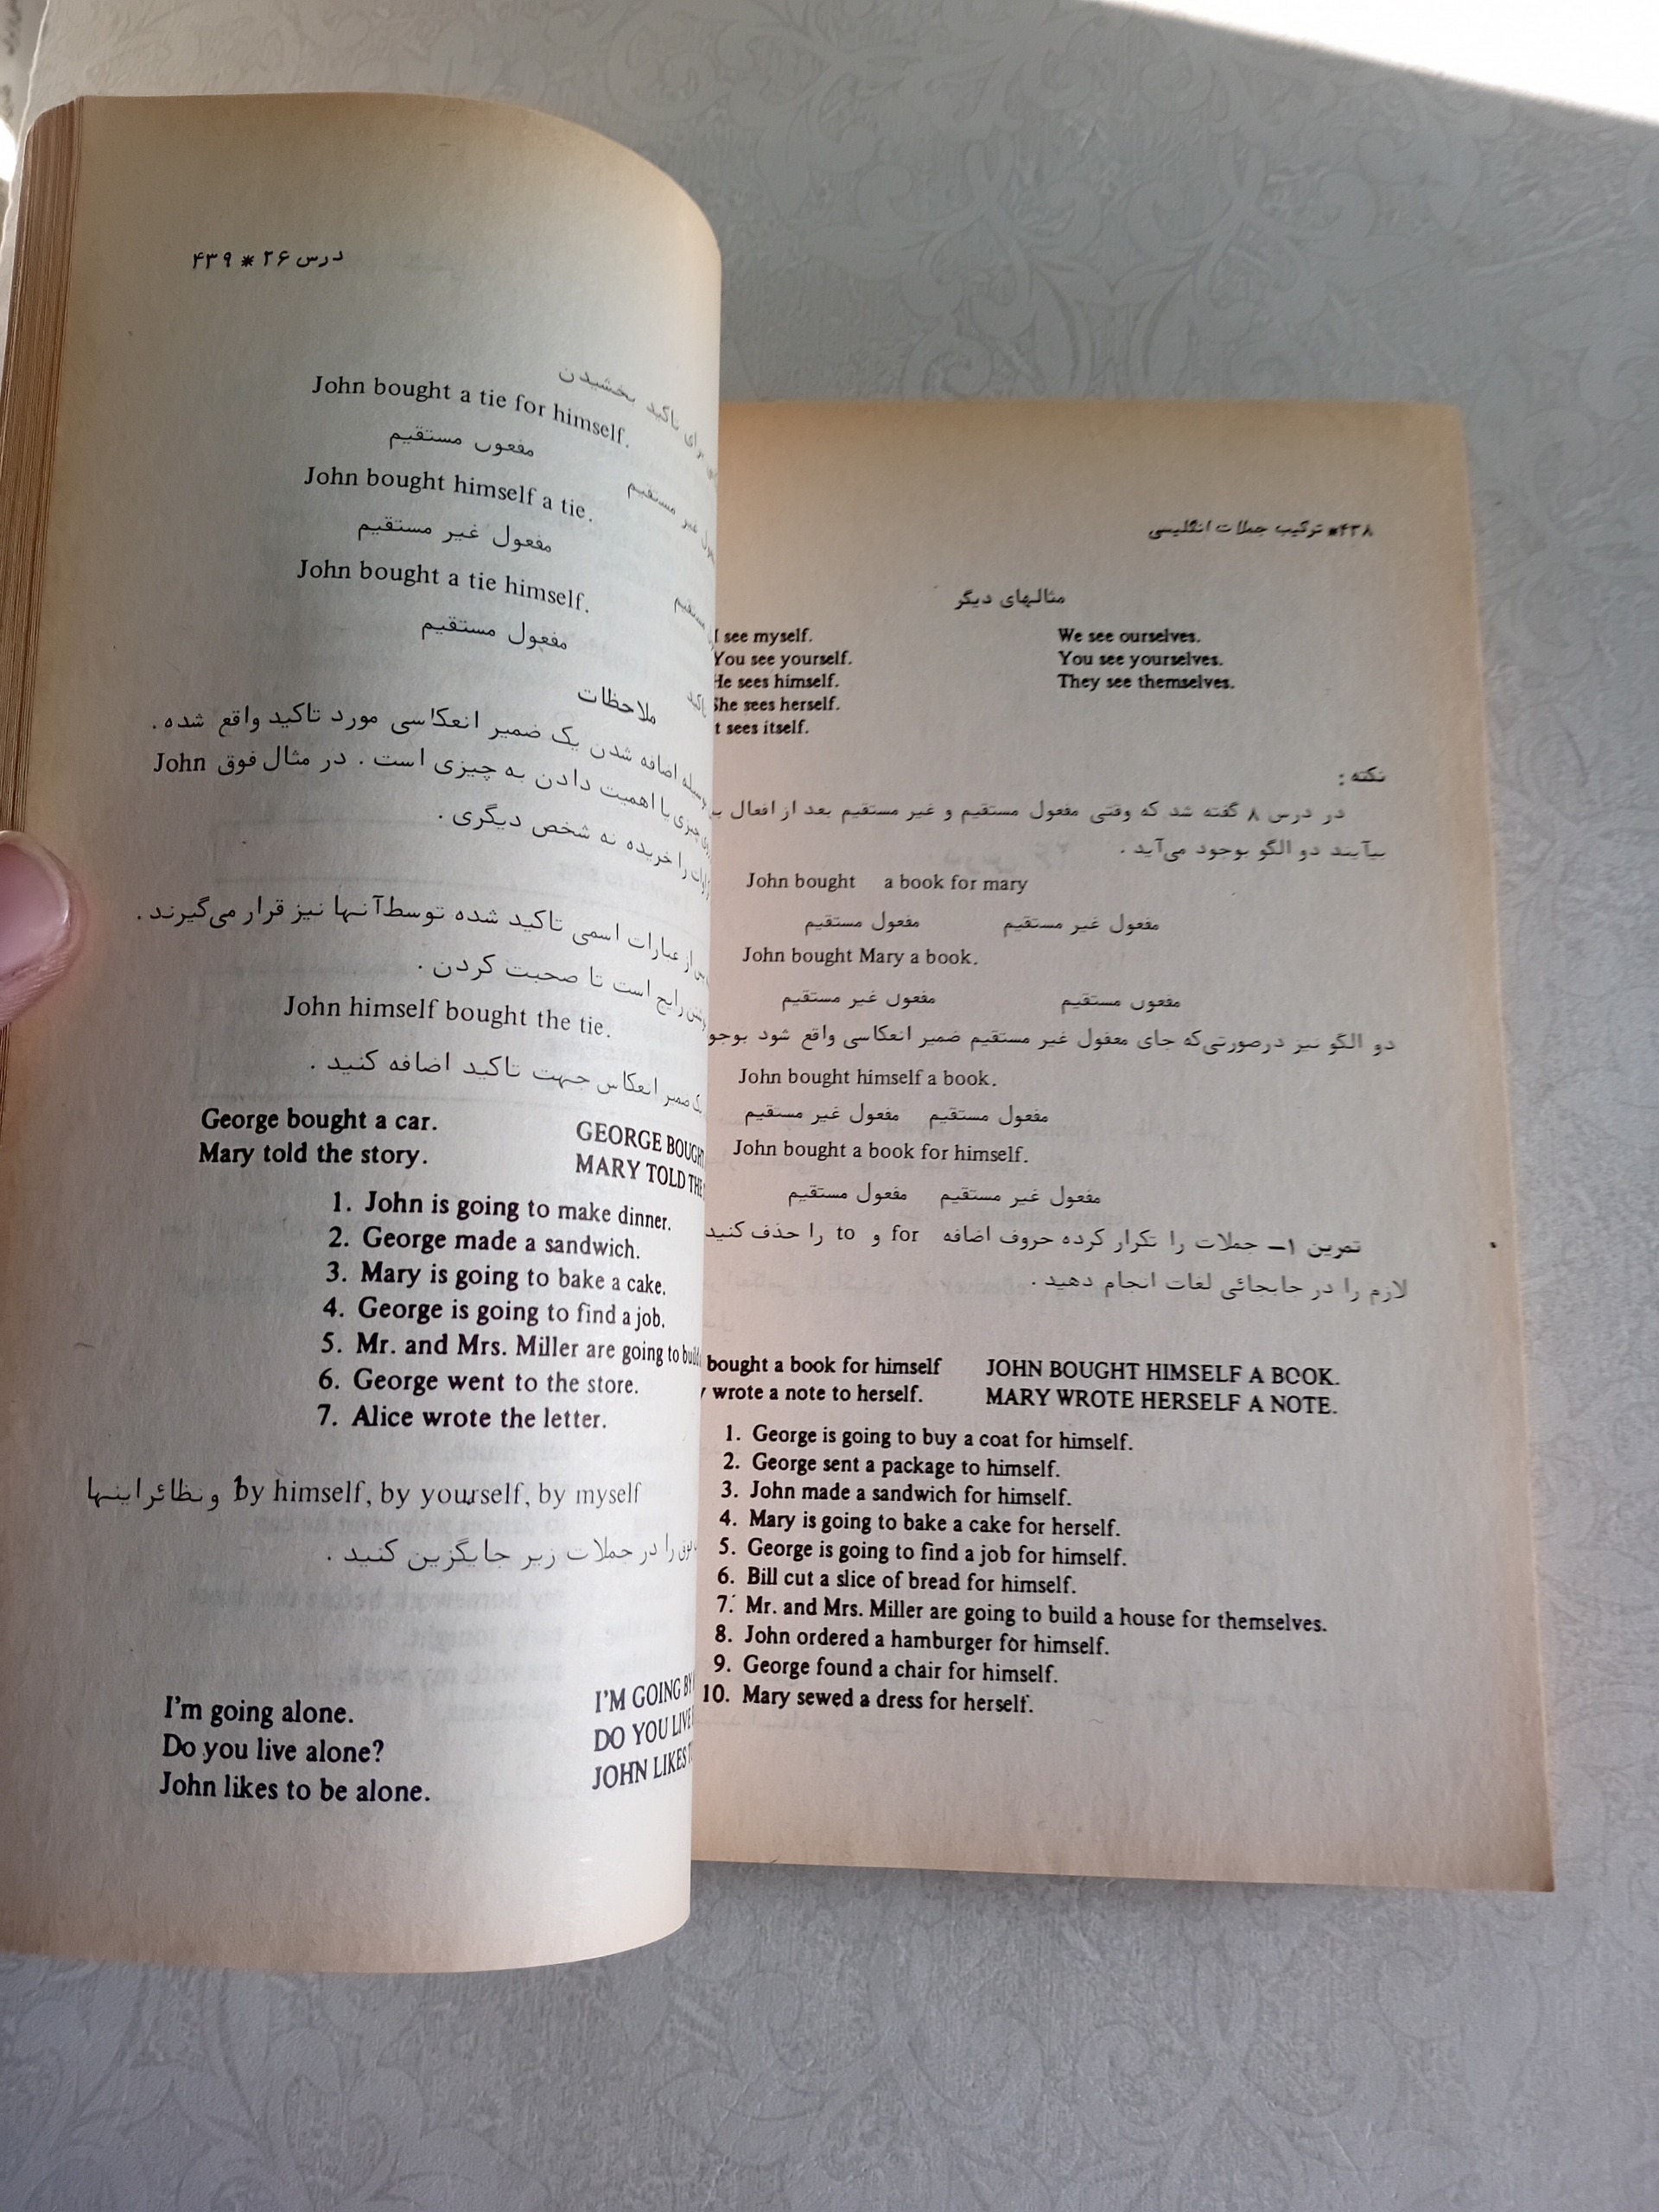 ۴۳۸* ترکیب جملات انگلیسی
مثالهای دیگر
I see myself. We see ourselves.
You see yourself. You see yourselves.
He sees himself. They see themselves.
She sees herself.
t sees itself.
نکته :
در درس ۸ گفته شد که وقتی مفعول مستقیم و غیر مستقیم بعد از افعال
بیآیند دو الگو بوجود می‌آید .
John bought a book for mary
مفعول مستقیم مفعول غیر مستقیم
John bought Mary a book.
مفعول غیر مستقیم مفعول مستقیم
دو الگو نیز درصورتی‌که جای مفعول غیر مستقیم ضمیر انعکاسی واقع شود
John bought himself a book.
مفعول غیر مستقیم مفعول مستقیم
John bought a book for himself.
مفعول مستقیم مفعول غیر مستقیم
تمرین ۱- جملات را تکرار کرده حروف اضافه for و to را حذف کنید
لازم را در جابجائی لغات انجام دهید .
bought a book for himself JOHN BOUGHT HIMSELF A BOOK.
wrote a note to herself. MARY WROTE HERSELF A NOTE.
1. George is going to buy a coat for himself.
2. George sent a package to himself.
3. John made a sandwich for himself.
4. Mary is going to bake a cake for herself.
5. George is going to find a job for himself.
6. Bill cut a slice of bread for himself.
7. Mr. and Mrs. Miller are going to build a house for themselves.
8. John ordered a hamburger for himself.
9. George found a chair for himself.
10. Mary sewed a dress for herself.
درس ۲۶ * ۴۳۹
برای تاکید بخشیدن
John bought a tie for himself.
مفعول مستقیم غیر مستقیم
John bought himself a tie.
مفعول غیر مستقیم مستقیم
John bought a tie himself.
مفعول مستقیم تاکید
ملاحظات
بوسیله اضافه شدن یک ضمیر انعکاسی مورد تاکید واقع شده .
چیزی یا اهمیت دادن به چیزی است . در مثال فوق John
را خریده نه شخص دیگری .
پس از عبارات اسمی تاکید شده توسط آنها نیز قرار می‌گیرند .
رایج است تا صحبت کردن .
John himself bought the tie.
یک ضمیر انعکاس جهت تاکید اضافه کنید .
George bought a car. GEORGE BOUGHT
Mary told the story. MARY TOLD THE
1. John is going to make dinner.
2. George made a sandwich.
3. Mary is going to bake a cake.
4. George is going to find a job.
5. Mr. and Mrs. Miller are going to build
6. George went to the store.
7. Alice wrote the letter.
by himself, by yourself, by myself و نظائر اینها
را در جملات زیر جایگزین کنید .
I'm going alone. I'M GOING BY
Do you live alone? DO YOU LIVE
John likes to be alone. JOHN LIKES